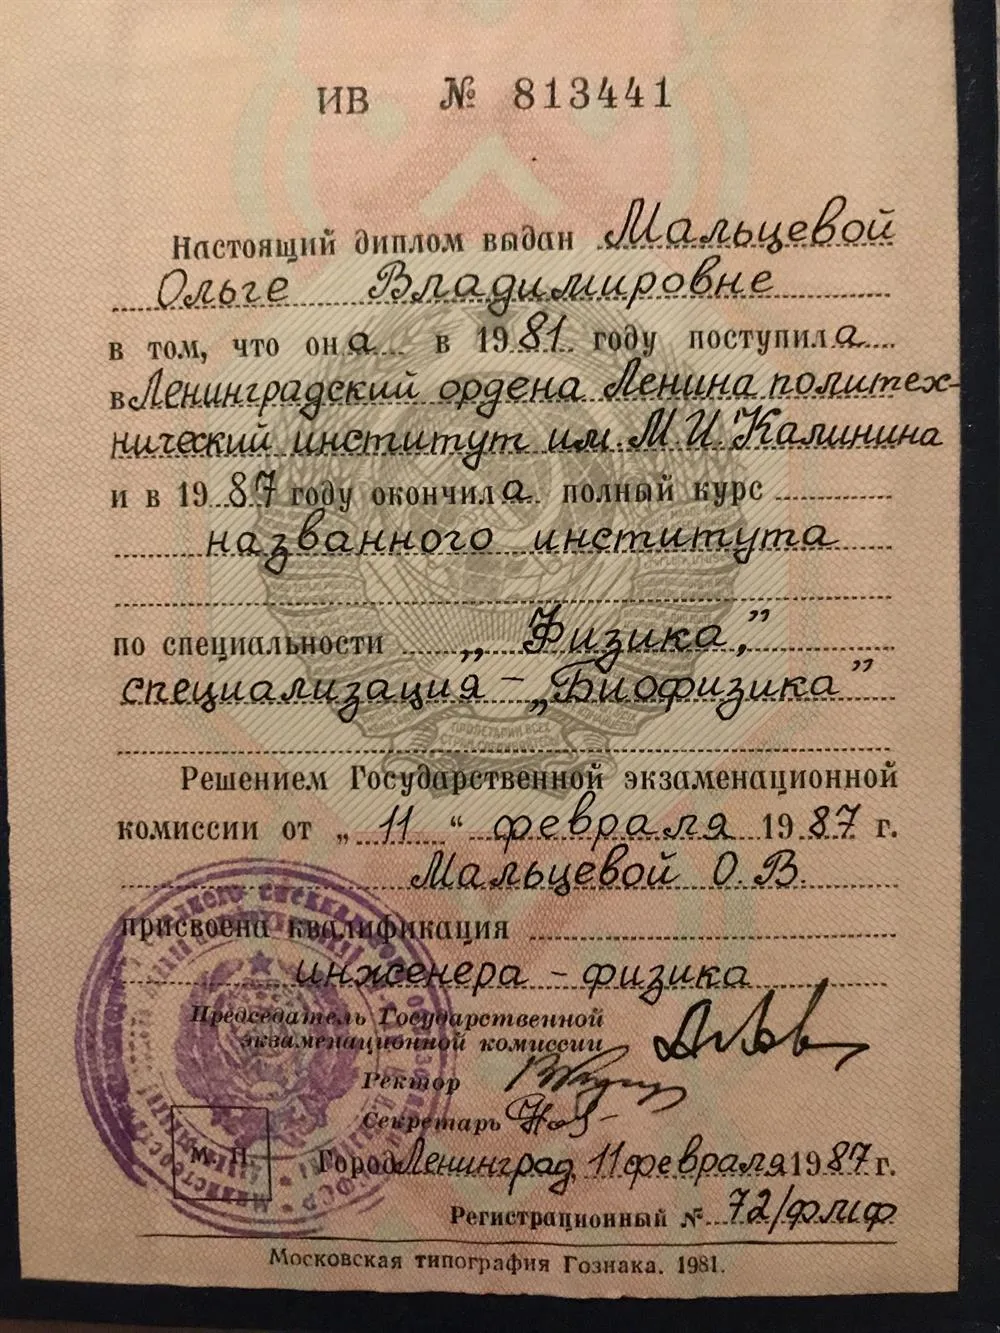 ИВ № 813441
Настоящий диплом выдан Мальцевой
Ольге Владимировне
в том, что она в 1981 году поступила
в Ленинградский ордена Ленина политех-
нический институт им. М.И. Калинина
и в 1987 году окончила полный курс
названного института
по специальности „Физика,”
специализация – „Биофизика”
Решением Государственной экзаменационной
комиссии от „11“ февраля 1987 г.
Мальцевой О.В.
присвоена квалификация
инженера – физика
Председатель Государственной
экзаменационной комиссии
Ректор
Секретарь
М. П.
Город Ленинград, 11 февраля 1987 г.
Регистрационный № 72/флмф
Московская типография Гознака. 1981.